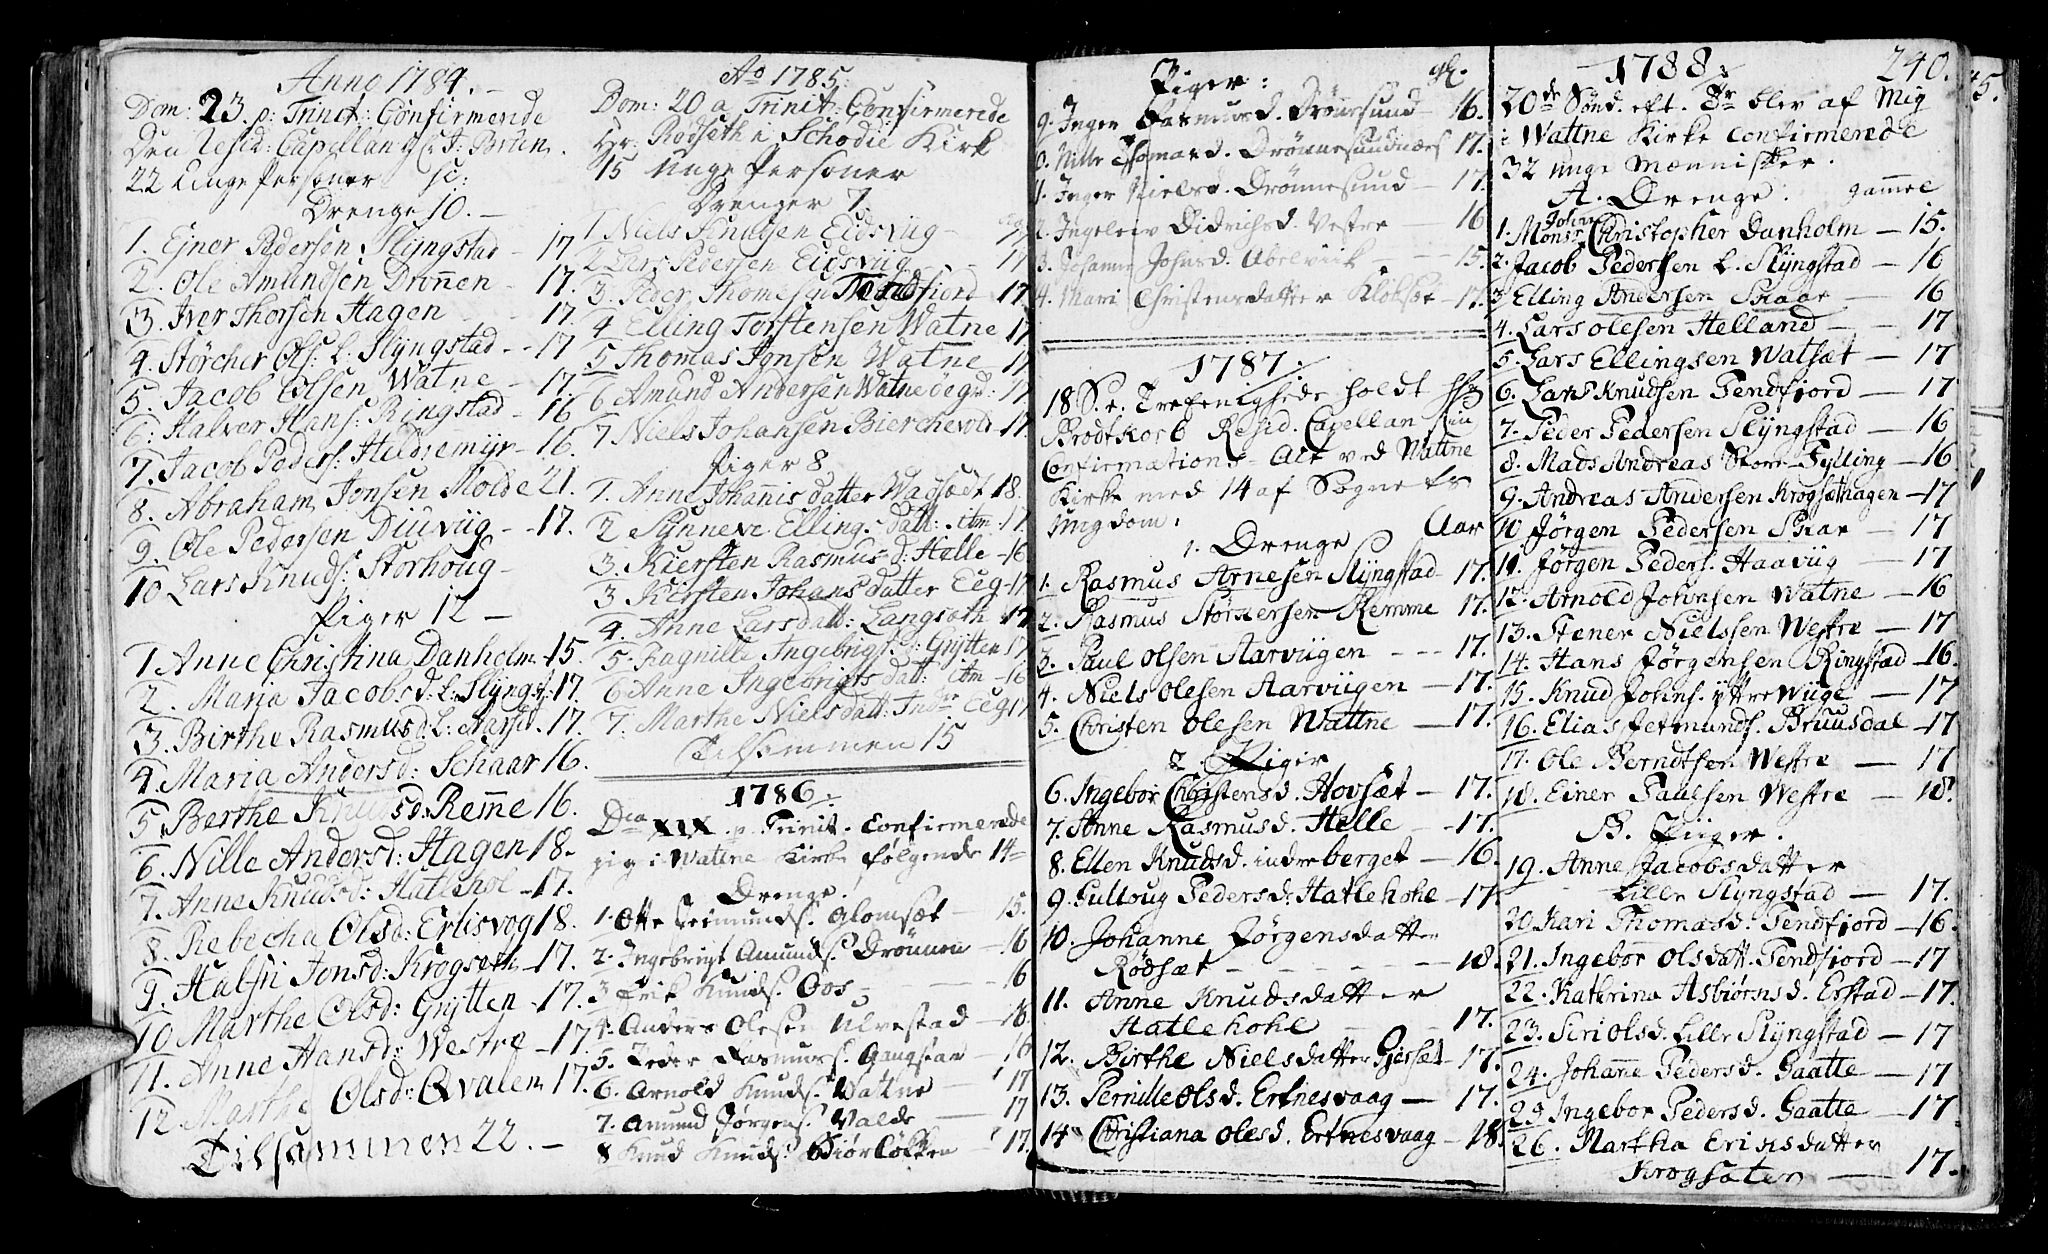 Anno 1784. –
Dom: 23. p: Trinit: Confirmerede
Den Resid: Capellan
22 Unge Personer sc:
Drenge 10. –
1. Ejner Pedersen Slÿngstad – 17
2. Ole Amundsen Drönen – 17.
3. Iver Thorsen Hagen – 17
4. Störcher Ols: L: Slÿngstad – 17
5. Jacob Olsen Watne – 17.
6. Halver Hans: Ringstad – 16
7. Jacob Peders: Hildremÿr – 16.
8. Abraham Jonsen Molde 21.
9. Ole Pedersen Diuviig – 17.
10 Lars Knuds: Storhoug –
Piger 12 –
1 Anne Christina Danholm – 15.
2. Maria Jacobsd: L: Slÿngst. 17.
3. Birthe Rasmusd: L: 17.
4. Maria Andersd: Schaar 16.
5. Berthe Knudsd: Remme 16.
6. Nille Andersd: Hagen 18.
7. Anne Knudsd: Hatlehol – 17.
8. Rebecha Olsd: Erlisvog 18.
9. Halsri Jonsd: Krogseth – 17.
10 Marthe Olsd: Grÿtten – 17.
11. Anne Hansd: Westre – 17
12. Marthe Olsd: Qvalen 17.
Tilsammen 22. –
Ao 1785.
Dom: 20 a Trinit: Confirmerede
Hr: Rodseth i Schodie Kirk
15 unge Personer
Drenger 7.
1 Niels Knudsen Eidsvug – 17
2 Lars Pedersen Eidsvug – 17
3. Peder Thomesen Tendfiord 17
4 Elling Torstensen Watne 17
5 Thomas Jonsen Watne 17
6 Amund Andersen Watne 17
7 Niels Johansen Bierchevold 17.
Piger 8
1. Anne Johannis datter Wadsödt 18.
2 Sÿnneve Ellings datt: itm – 17.
3. Kiersten Rasmus d: Helle – 16
3 Kirsten Johans datter Eeg – 17
4. Anne Lars datt: Langsæth 17
5. Ragnille Ingebrigt d: Grÿtten 17
6 Anne Ingebrigts datt: itm – 16
7. Marthe Niels datt: Indre Eeg 17
Tilsammen 15
1786.
Dca XIX. p. Trinit. Confirmerede
jeg i Watne Kirke følgende 14
Drenge.
1. Otte Alomsæt – 15.
2. Ingebrigt Amunds. Drönnen – 16
3 Erik Knuds. Oos – 16
4. Anders Olesen Ulvestad – 16
5. Peder Rasmus. Gangstad – 16
6. Arnold Knuds. Wattne – 17
7. Amund Jørgens. Walde – 17
8 Knud Knuds. Biörløkken – 17.
Piger: gl.
9. Inger Rasmusd. Drönnesund – 16.
10. Nille Thomasd. Drönnesundnæs 17.
11. Inger Nielsd. Drönnesund – 17.
12. Ingeleiv Didrichsd. Vestre – 16
13. Johanne Johnsd. Abelviik – 15.
14. Mari Christensdatter Klöksæt – 17.
1787.
18. S. e. Trefoldighed holdt
Brodtkorb Resid. Capellan sin
Confirmations-Act ved Wattne
Kirke med 14 af Sognets
Ungdom.
1. Drenge Aar
1. Rasmus Arnesen Slÿngstad 17.
2. Rasmus Störkersen Remme 17.
3. Paul Olsen Aarviigen – 17.
4. Niels Olesen Aarviigen – 17.
5. Christen Olesen Wattne – 17.
2. Piger
6. Ingebor Christensd. Hovsæt – 17.
7. Anne Rasmusd. Helle – 17.
8. Ellen Knudsd. indreberget – 16.
9. Gulloug Pedersd: Hatlehohl – 17
10. Johanne Jørgensdatter
Rödsæt – 18.
11. Anne Knudsdatter
Hatlehohl – 17.
12. Birthe Nielsdatter Gjersæt – 17.
13. Pernille Olsd. Ertnesvaag – 17.
14. Christiana Olesd. Ertnesvaag – 18.
1788. 240.
20de Sönd. eft. Tr blev af Mig
i Wattne Kirke confirmerede
32 unge Mennisker.
A. Drenge. gammel
1. Monsr. Johan Christopher Danholm – 15.
2. Jacob Pedersen L. Slÿngstad – 16
3 Elling Andersen Skaar – 16
4. Lars Olesen Helland – 17
5. Lars Ellingsen Watsæt – 17
6. Lars Knudsen Tendfiord – 17
7. Peder Pedersen Slÿngstad – 16
8. Mads Andreas Fylling – 16
9. Andreas Andersen Krogsæthagen – 17
10 Jørgen Pedersen Skaar – 17
11. Jørgen Peders. Haaviig – 17
12. Arnold Johnsen Watne – 16
13. Stener Nielssen Westre – 17
14. Hans Jørgensen Ringstad – 16.
15. Knud Johns. Ÿttre Wiige – 17
16. Elias Bruusdal – 17
17. Ole Berndtsen Westre – 17
18. Einer Paulsen Westre – 18.
B. Piiger.
19. Anne Jacobsdatter
Lille Slÿngstad – 17.
20. Kari Thomasd. Tendfiord – 16.
21. Ingebor Olsdatt. Tendfiord – 17
22. Kathrina Asbiörnsd. Erstad – 17.
23. Siri Olsd. Lille Slÿngstad – 17
24. Johanne Pedersd. Gaatte – 17
25. Ingebor Pedersd. Gaatte – 17
26. Martha Erichsdatter
Krogsæter – 17.